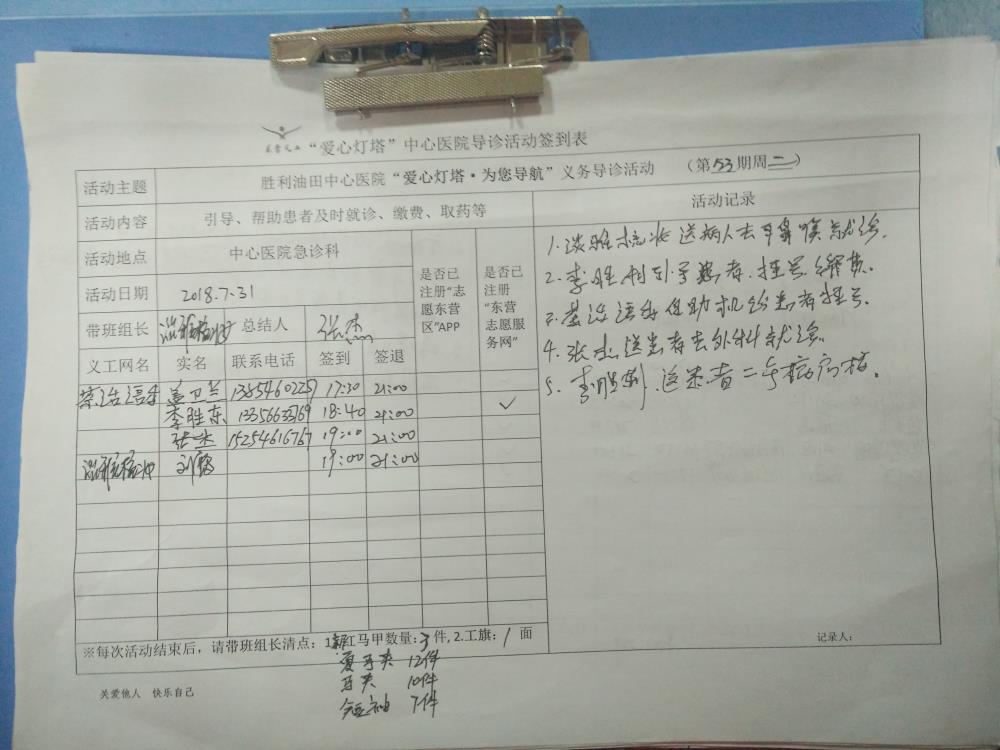 “爱心灯塔”中心医院导诊活动签到表
活动主题 胜利油田中心医院“爱心灯塔·为您导航”义务导诊活动 (第53期周二)
活动内容 引导、帮助患者及时就诊、缴费、取药等
活动记录
活动地点 中心医院急诊科
是否已注册“志愿东营区”APP
是否已注册“东营志愿服务网”
活动日期 2018.7.31
带班组长 总结人 张杰
义工网名 实名 联系电话 签到 签退
盖卫兰 17:30 21:00
李胜东 13356633769 18:40 21:00 ✓
张杰 15254616767 19:00 21:00
刘 19:00 21:00
1. 送病人去耳鼻喉就诊.
2. 李胜利引导患者.挂号.缴费.
3. 助机给患者挂号.
4. 张杰送患者去外科就诊.
5. 李胜利.送患者二号病房楼.
※每次活动结束后，请带班组长清点：1.新红马甲数量:3件,2.工旗:1面
夏马夹 12件
马夹 10件
短袖 7件
记录人:
关爱他人 快乐自己